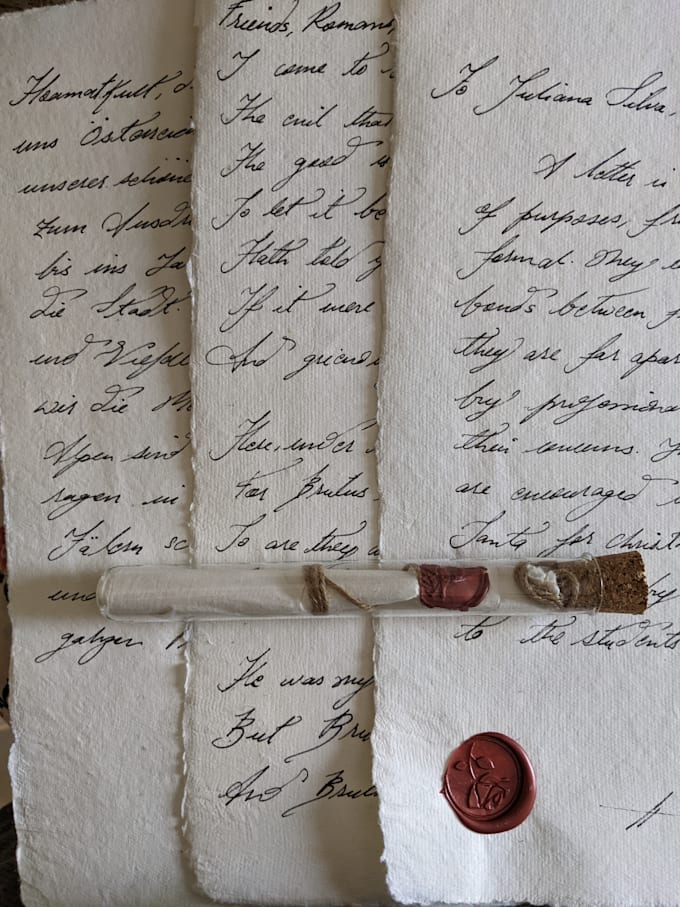 uns Österrei
unserer schöne
zum Ausdr
bis ins
die Stadt.
und
wir die
Alpen sind
ragen in
Tälern sc
und
Friends, Romans,
I come to
The evil that
The good is
To let it be
Hath told y
If it were
And grievou
Here, under
For Brutus
To are they a
He was my
But Bru
And Brutu
To Juliana Silva,
A letter i
of purposes, fr
formal. They
bonds between
they are far apar
by professiona
their concerns. Y
are encouraged
Santa for christ
by
to the students